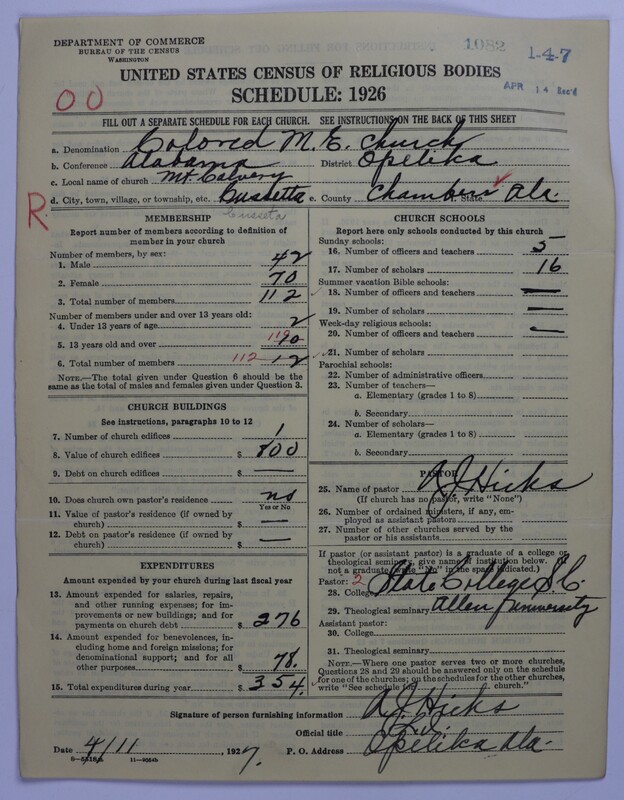 DEPARTMENT OF COMMERCE
BUREAU OF THE CENSUS
WASHINGTON
1082
1-4-7
APR 14 Rec'd
UNITED STATES CENSUS OF RELIGIOUS BODIES
SCHEDULE: 1926
00
FILL OUT A SEPARATE SCHEDULE FOR EACH CHURCH. SEE INSTRUCTIONS ON THE BACK OF THIS SHEET
a. Denomination Colored M. E. Church
b. Conference Alabama District Opelika
c. Local name of church Mt. Calvery
d. City, town, village, or township, etc. Cussetta e. County Chambers State Ala.
R
Cusseta
MEMBERSHIP
Report number of members according to definition of member in your church
Number of members, by sex:
1. Male 42
2. Female 70
3. Total number of members 112
Number of members under and over 13 years old:
4. Under 13 years of age 2
5. 13 years old and over 110
6. Total number of members 112
NOTE.—The total given under Question 6 should be the same as the total of males and females given under Question 3.
CHURCH BUILDINGS
See instructions, paragraphs 10 to 12
7. Number of church edifices 1
8. Value of church edifices $ 800
9. Debt on church edifices $ —
10. Does church own pastor's residence no
Yes or No
11. Value of pastor's residence (if owned by church) $ —
12. Debt on pastor's residence (if owned by church) $ —
EXPENDITURES
Amount expended by your church during last fiscal year
13. Amount expended for salaries, repairs, and other running expenses; for improvements or new buildings; and for payments on church debt $ 276
14. Amount expended for benevolences, including home and foreign missions; for denominational support; and for all other purposes $ 78.
15. Total expenditures during year $ 354.
CHURCH SCHOOLS
Report here only schools conducted by this church
Sunday schools:
16. Number of officers and teachers 5
17. Number of scholars 16
Summer vacation Bible schools:
18. Number of officers and teachers —
19. Number of scholars —
Week-day religious schools:
20. Number of officers and teachers —
21. Number of scholars
Parochial schools:
22. Number of administrative officers
23. Number of teachers—
a. Elementary (grades 1 to 8)
b. Secondary
24. Number of scholars—
a. Elementary (grades 1 to 8)
b. Secondary
PASTOR
25. Name of pastor A J Hicks
(If church has no pastor, write "None")
26. Number of ordained ministers, if any, employed as assistant pastors
27. Number of other churches served by the pastor or his assistants
If pastor (or assistant pastor) is a graduate of a college or theological seminary, give name of institution below. (If not a graduate write "No" in the space indicated.)
Pastor: 2
28. College State College S. C.
29. Theological seminary Allen University
Assistant pastor:
30. College
31. Theological seminary
NOTE.—Where one pastor serves two or more churches, Questions 28 and 29 should be answered only on the schedule for one of the churches; on the schedules for the other churches, write "See schedule for church."
Signature of person furnishing information A J Hicks
Official title
Date 4/11, 1927.
P. O. Address Opelika Ala.
11—9324b